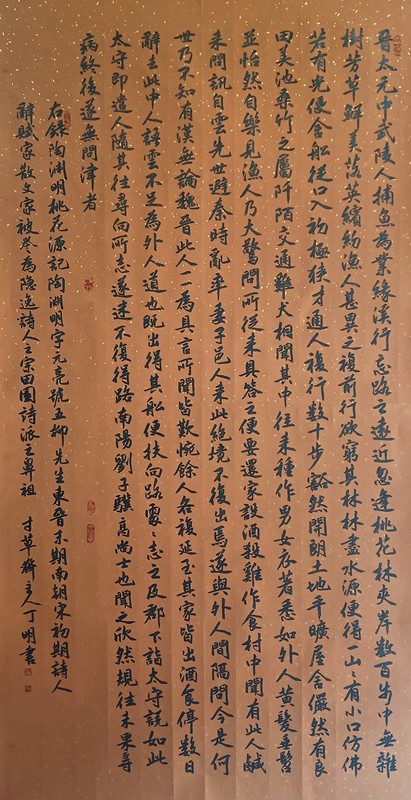 晉太元中武陵人捕魚為業緣溪行忘路之遠近忽逢桃花林夾岸數百步中無雜
樹芳草鮮美落英繽紛漁人甚異之複前行欲窮其林林盡水源便得一山々有小口仿佛
若有光便舍船從口入初極狹才通人複行數十步豁然開朗土地平曠屋舍儼然有良
田美池桑竹之屬阡陌交通雞犬相聞其中往来種作男女衣著悉如外人黃髮垂髫
並怡然自樂見漁人乃大驚問所從来具答之便要還家設酒殺雞作食村中聞有此人鹹
来問訊自雲先世避秦時亂率妻子邑人来此絕境不復出焉遂與外人間隔問今是何
世乃不知有漢無論魏晉此人一一為具言所聞皆歎惋餘人各複延至其家皆出酒食停數日
辭去此中人語雲不足為外人道也既出得其船便扶向路處々志之及郡下詣太守說如此
太守即遣人隨其往尋向所志遂迷不復得路南陽劉子驥高尚士也聞之欣然規往未果尋
病終後遂無問津者
右錄陶淵明桃花源記陶淵明字元亮號五柳先生東晉末期南胡宋初期詩人
辭賦家散文家被譽為隱逸詩人之宗田園詩派之鼻祖 才草齋主人丁明書